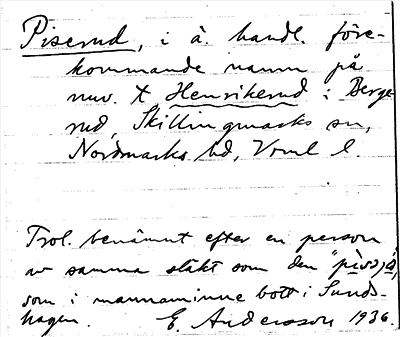 Piserud, i ä. handl. före-
kommande namn på
nuv. t Henrikerud i Berge-
rud, Skillingmarks sn,
Nordmarks hd, Vrml l.
Trol. benämnt efter en person
av samma släkt som den "
som i mannaminne bott i Sunds-
hagen. E. Andersson 1936.